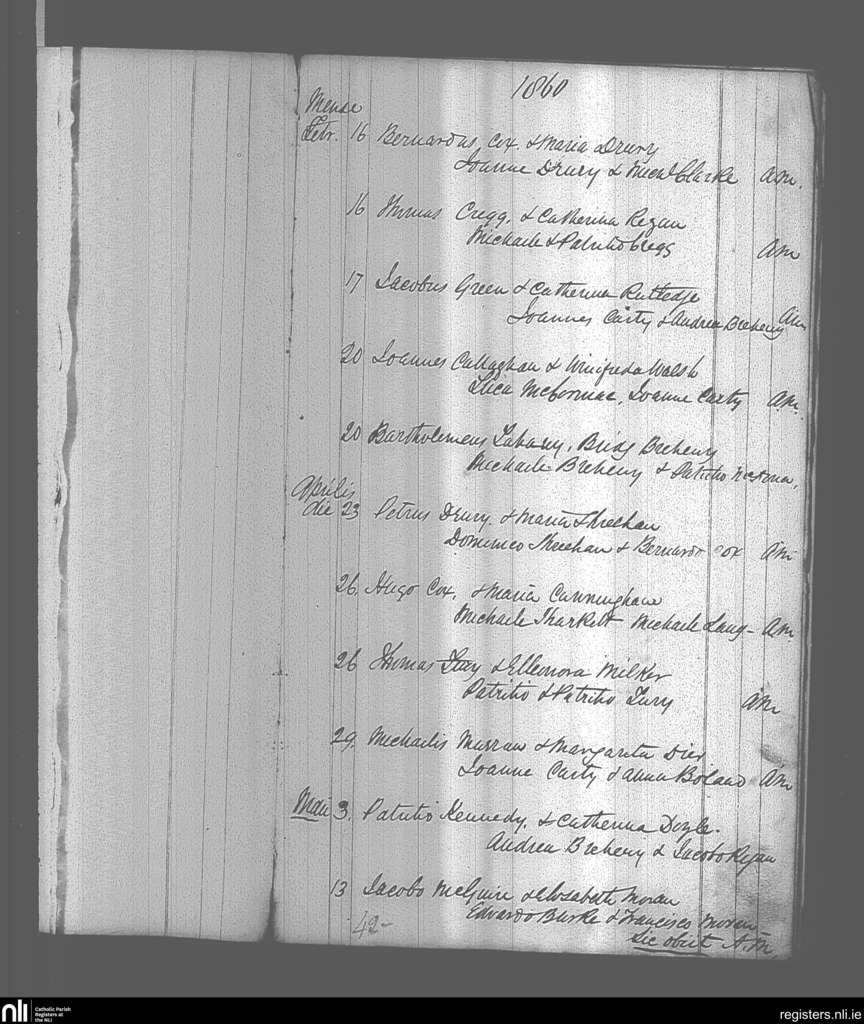 1860
Mense
Febr. 16 Bernardus Cox & Maria Drury
Joanne Drury & Michl Clarke Am.
16 Thomas Cregg. & Catherina Regan
Michaele & Patritio Cregg Am
17 Jacobus Green & Catherina Rutledge
Joannes Carty & Andrea Breheny Am
20 Joannes Callaghan & Winifreda Walsh
McCormac, Joanne Carty Am.
20 Bartholemeus Bridg Breheny
Michaele Breheny & Patritio
Aprilis
die 23 Petrus Drury. & Maria Sheehan
Dominico Sheehan & Bernardo Cox Am
26 Hugo Cox, & Maria Cunninghane
Michaele Sharkett Michaele Lang- Am
26 Thomas Fury & Elleonora Milker
Patritio & Patritio Fury Am
29. Michaelis Murrau & Margarita Dier
Joanne Carty & Anna Boland Am
Maii 3. Patritio Kennedy. & Catherina Doyle.
Andrea Breheny & Jacobo Regan
13 Jacobo McGuire & Elisabeth Moran
Edvardo Burke & Francisco Moran
Sic obiit A. M.
42-
nli
Catholic Parish
Registers at
the NLI
registers.nli.ie